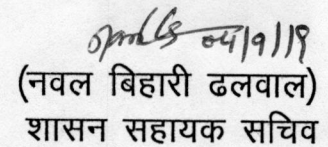 04/9/19
(नवल बिहारी ढलवाल)
शासन सहायक सचिव